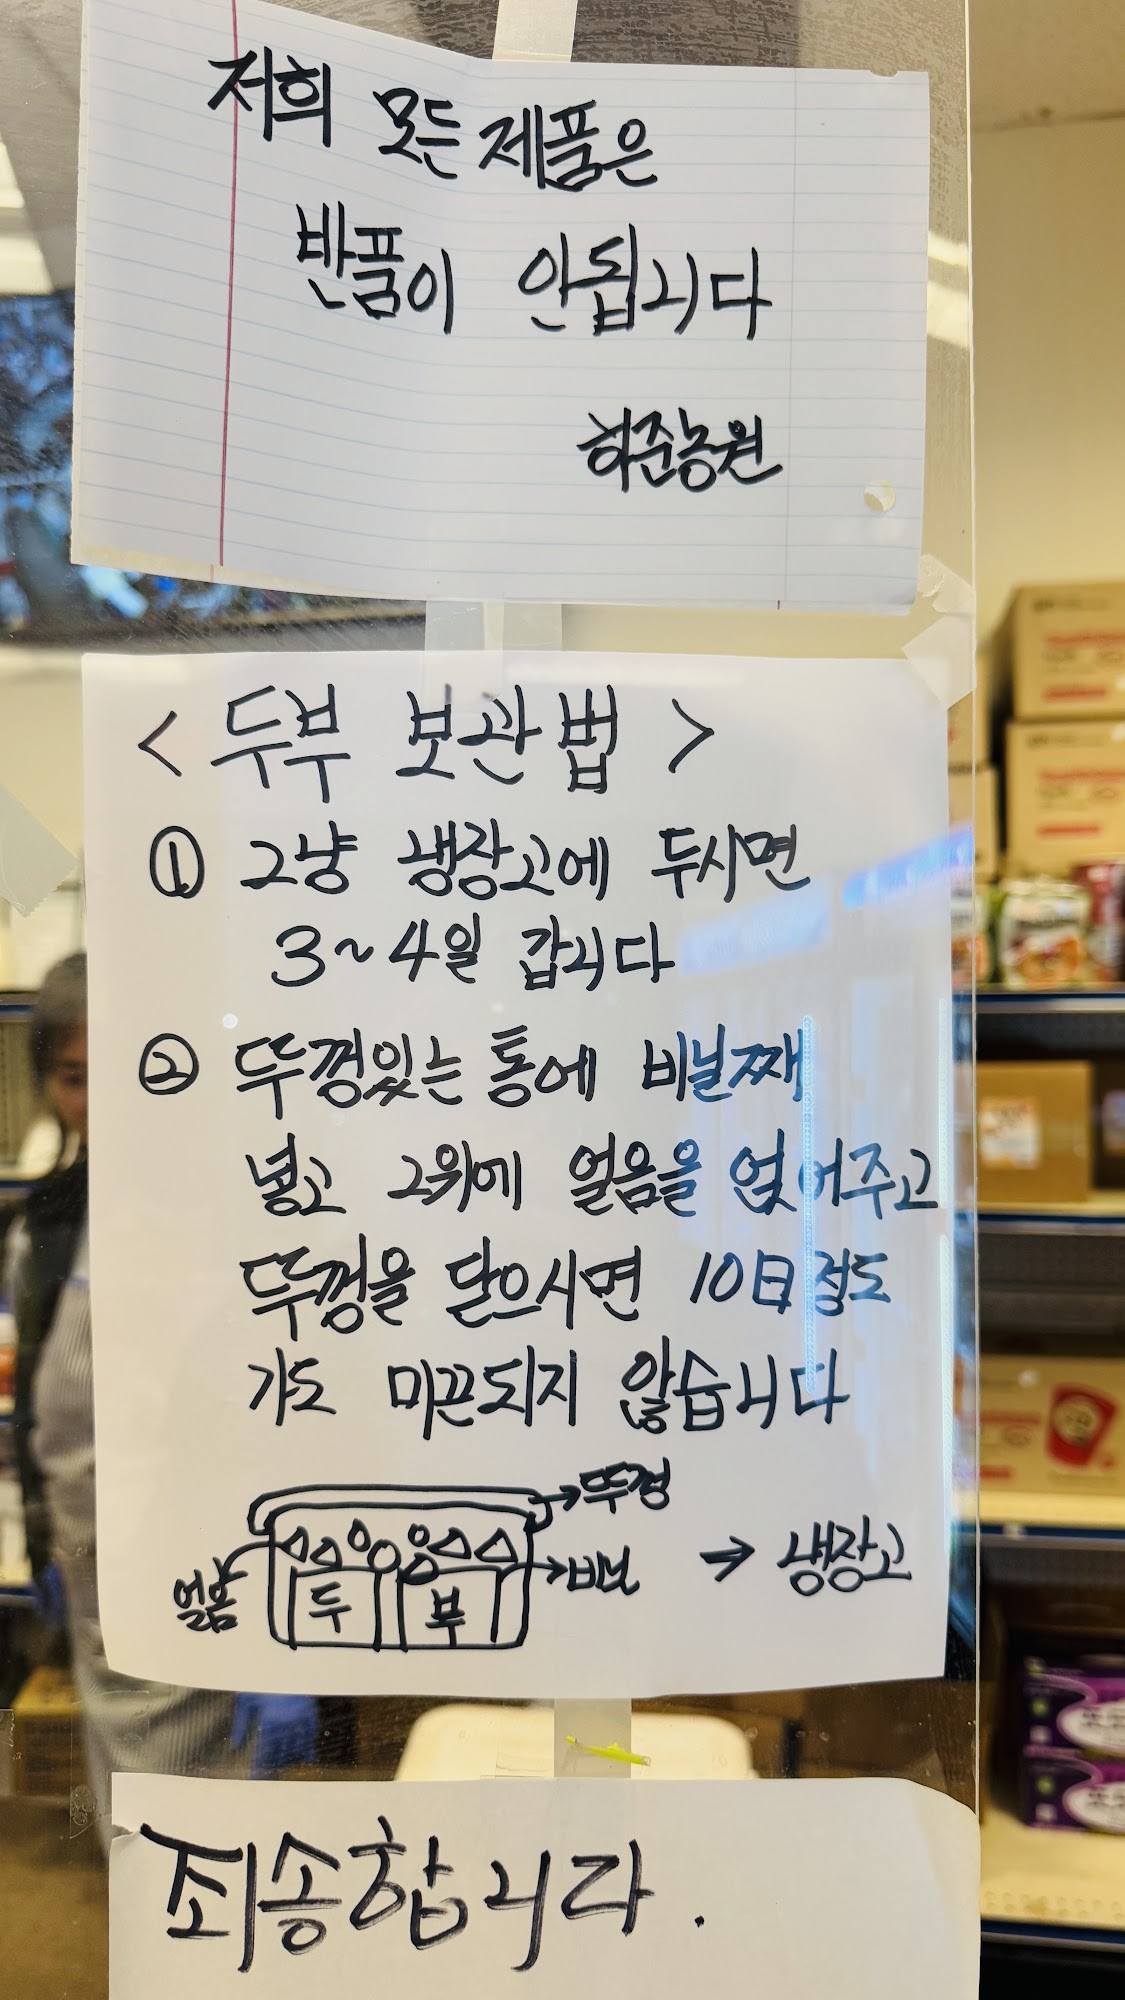 저희 모든 제품은
반품이 안됩니다
허준농원
< 두부 보관법 >
① 그냥 냉장고에 두시면
3~4일 갑니다
② 뚜껑있는 통에 비닐째
넣고 그위에 얼음을 얹어주고
뚜껑을 닫으시면 10日정도
가도 미끈되지 않습니다
뚜껑
얼음
두 부
비닐
→ 냉장고
죄송합니다.